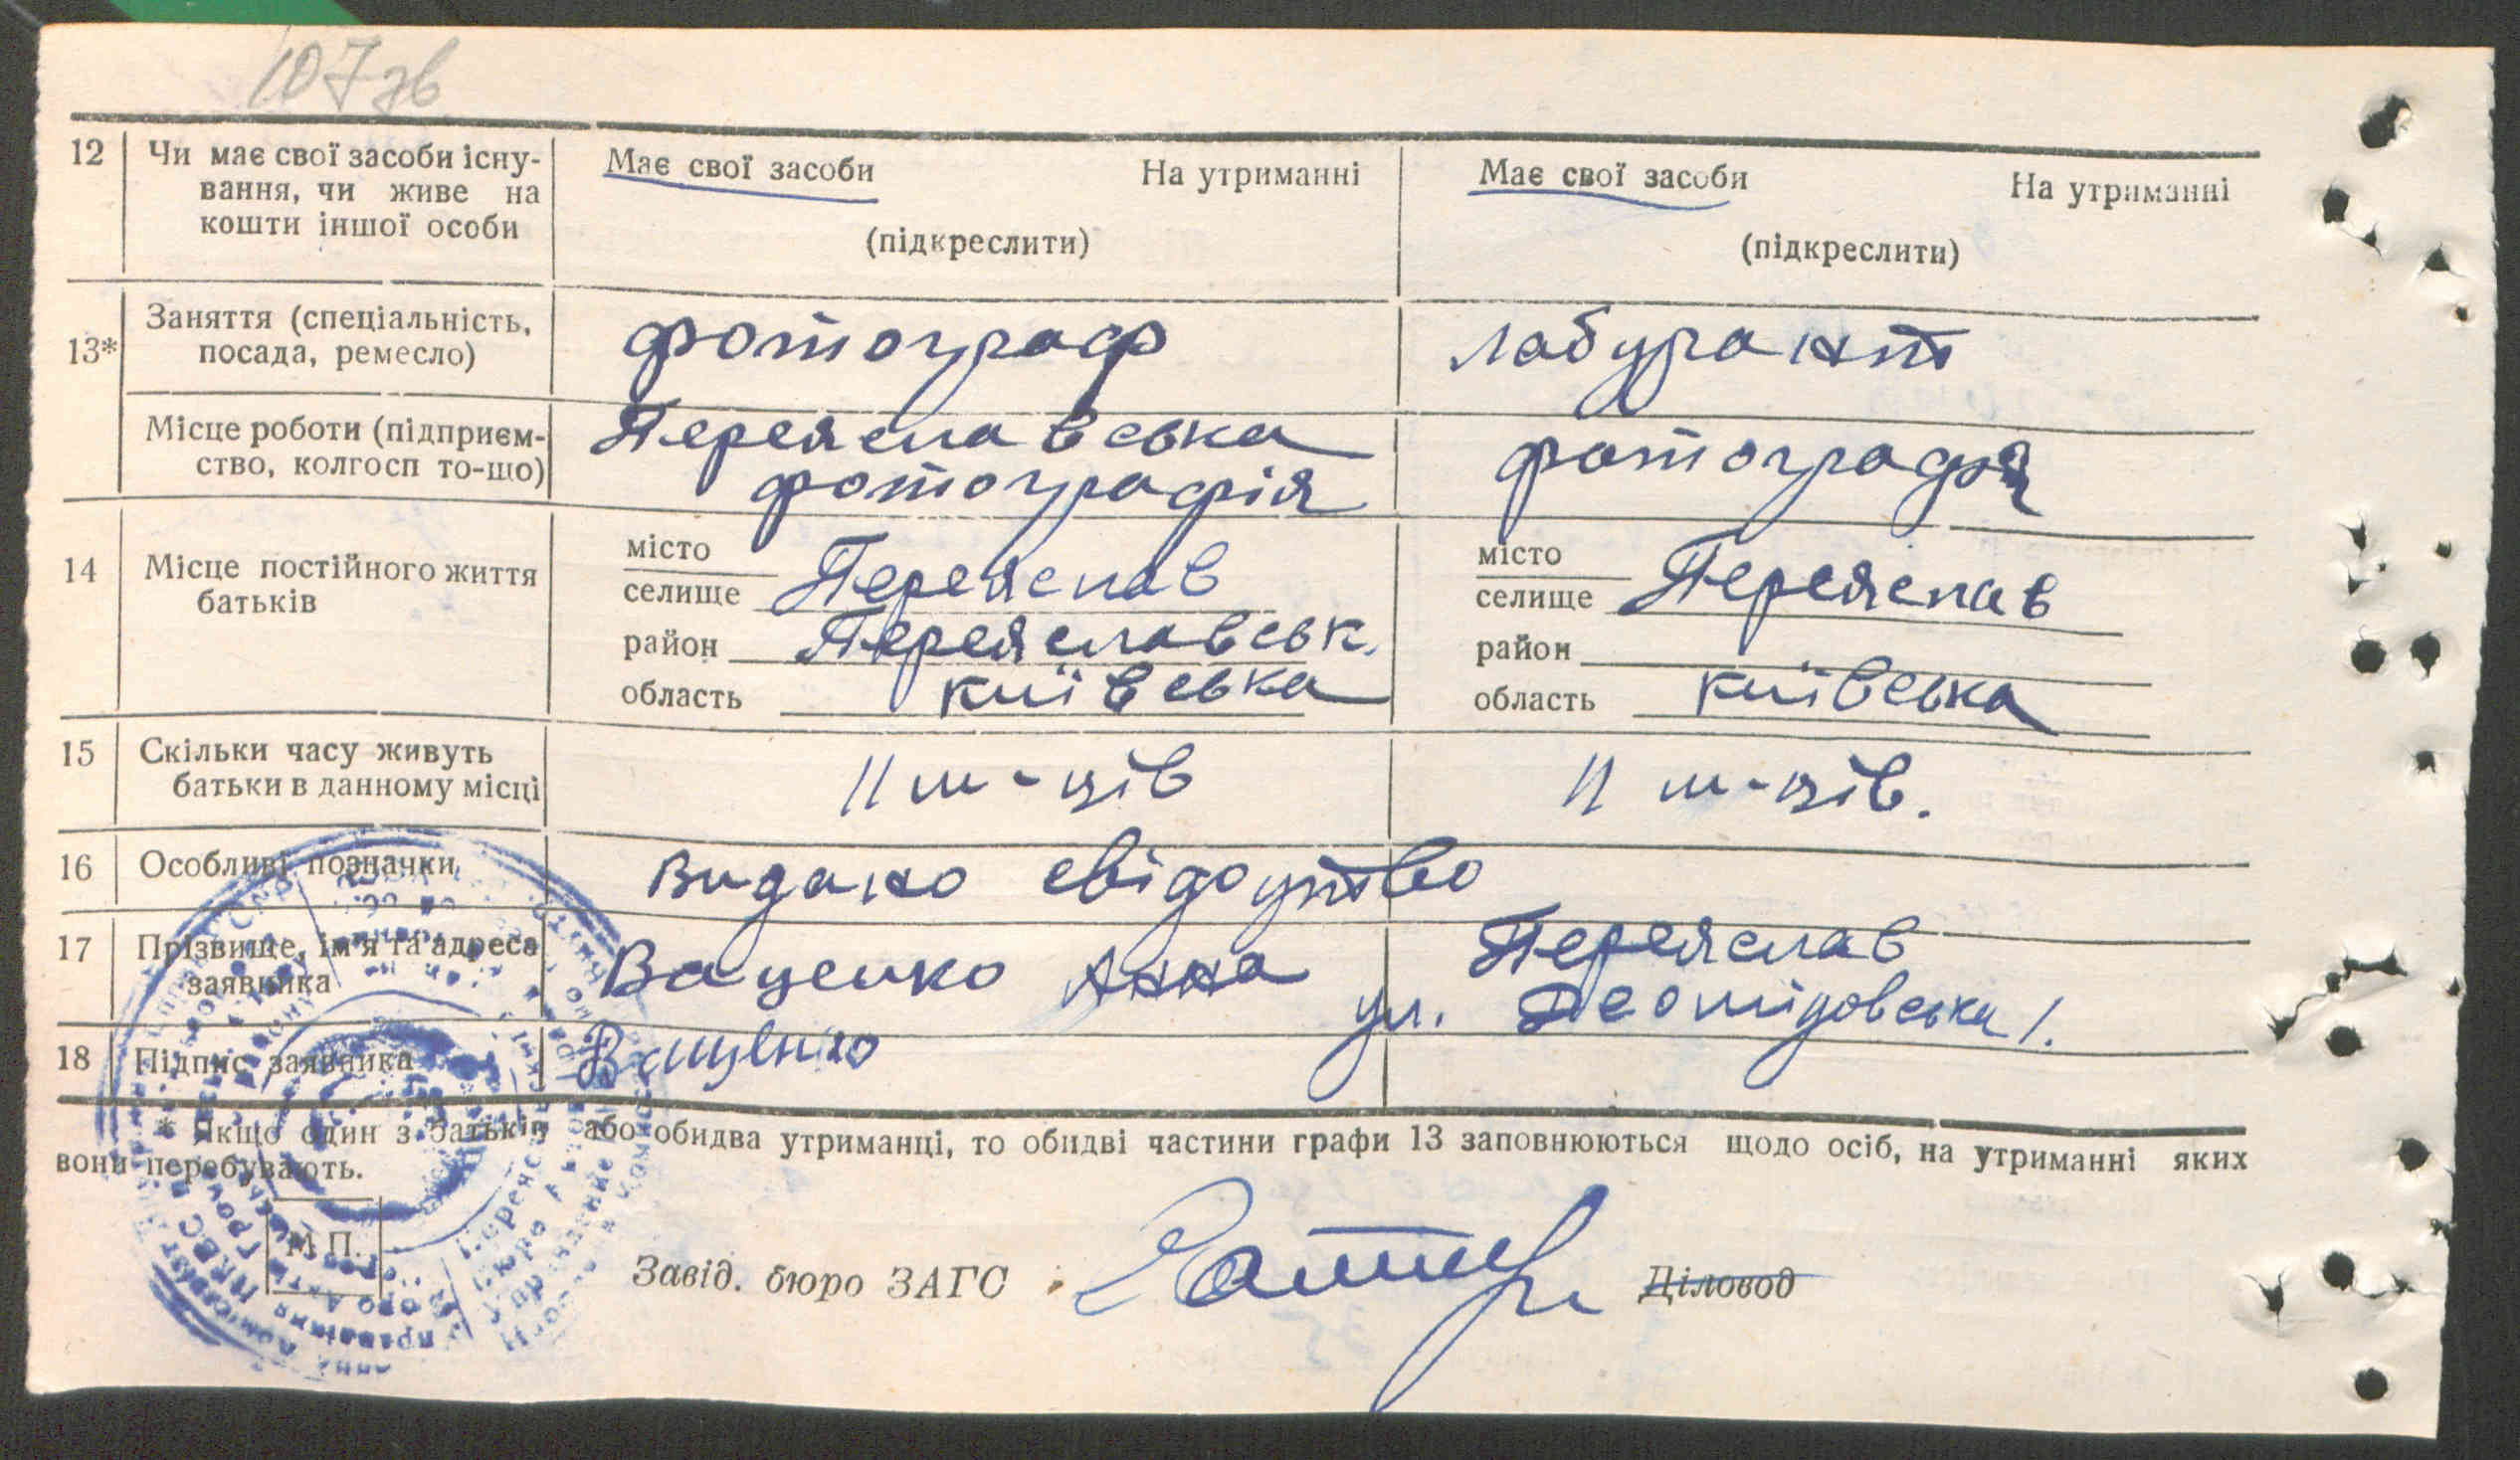 107зв
12 Чи має свої засоби існу-
вання, чи живе на
кошти іншої особи
Має свої засоби На утриманні
(підкреслити)
Має свої засоби На утриманні
(підкреслити)
13* Заняття (спеціальність,
посада, ремесло)
фотограф
лабурант
Місце роботи (підприєм-
ство, колгосп то-що)
Переяславська
фотографія
фотографія
14 Місце постійного життя
батьків
місто
селище Переяслав
район Переяславськ.
область київська
місто
селище Переяслав
район
область київська
15 Скільки часу живуть
батьки в данному місці
11 м-ців
11 м-ців.
16 Особливі позначки
видано свідоцтво
17 Прізвище, ім'я та адреса
заявника
Ваценко Анна
Переяслав
ул. 1.
18 Підпис заявника
Ващенко
* Якщо один з батьків або обидва утриманці, то обидві частини графи 13 заповнюються щодо осіб, на утриманні яких
вони перебувають.
М.П.
Завід. бюро ЗАГС
Діловод